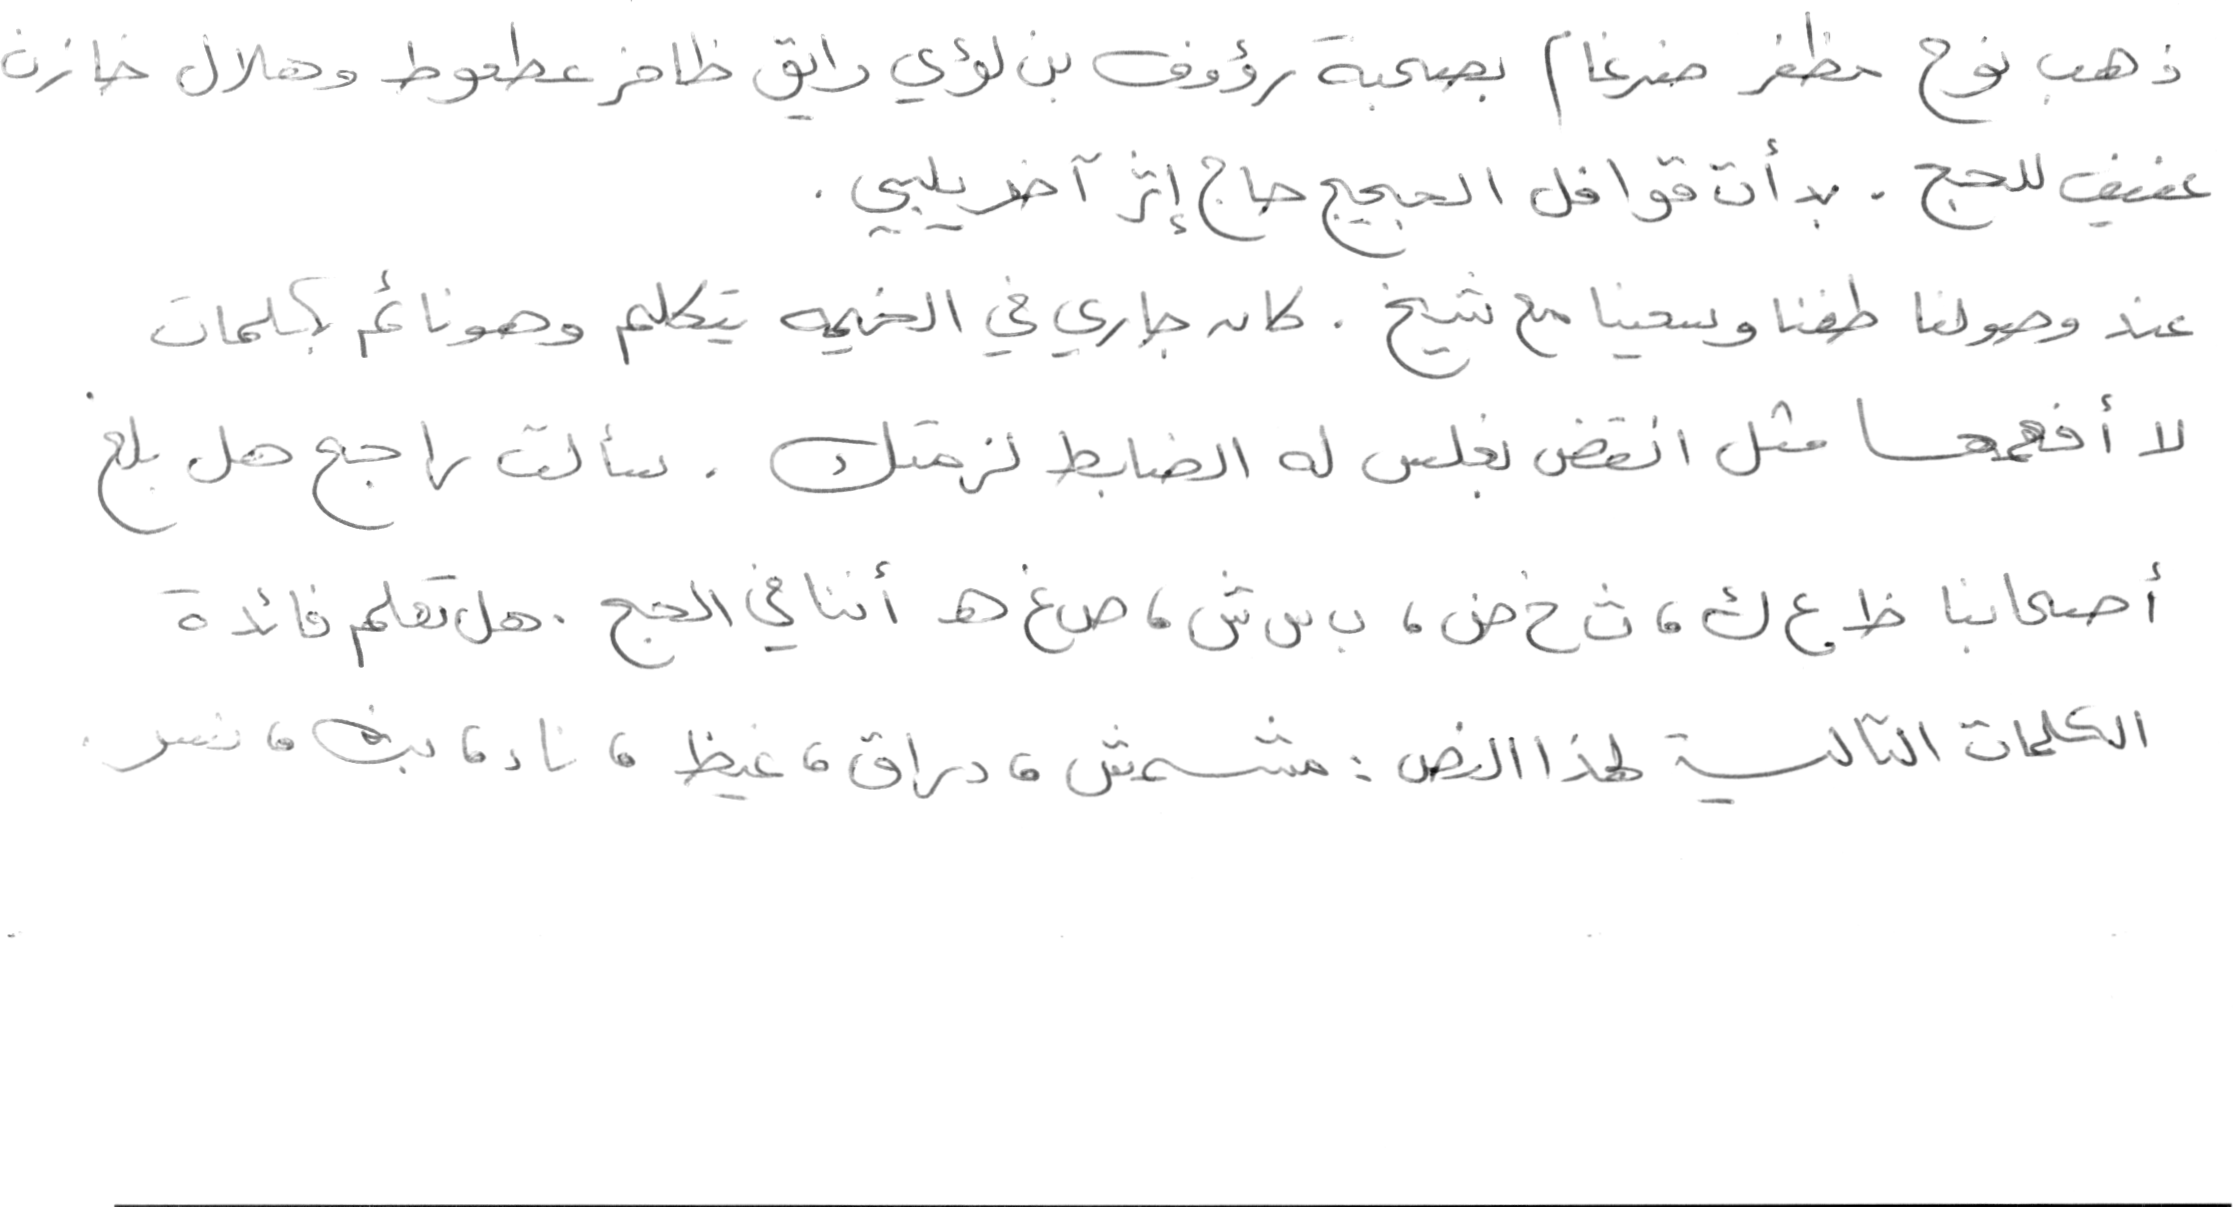 ذهب نوح مظفر ضرغام بصحبة رؤوف بن لؤي رايق ظافر عطعوط وهلال خازن
عفيف للحج . بدأت قوافل الحجيج حاج إثر آخر يلبي .
عند وصولنا طفنا وسعينا مع شيخ . كان جاري في الخيمه يتكلم وهو نائم بكلمات
لا أفهمها مثل انقض نغلس له الضابط لزمتك . سألت راجح هل بلغ
أصحابنا ظ ع ك ، ث خ ض ، ب س ش ، ص غ هـ أننا في الحج . هل تعلم فائدة
الكلمات التالية لهذا النص : مشمش ، دراق ، غيظ ، ناد ، بث ، نسر .